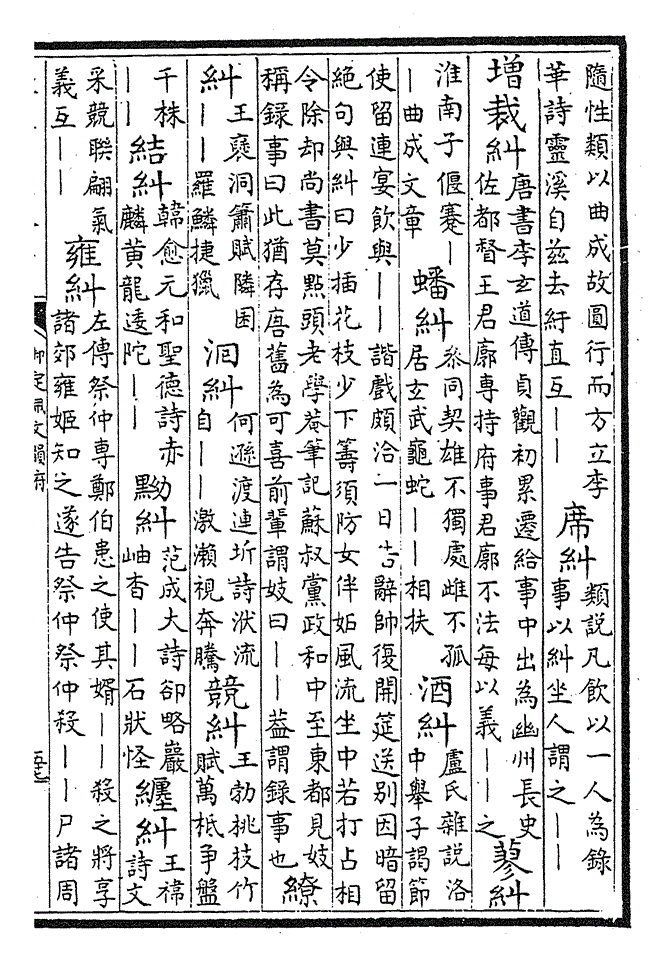 隨性類以曲成故圓行而方立李華詩靈溪自兹去紆直互——席糾類說凡飲以一人為錄事以糾坐人謂之——
增裁糾唐書李玄道傳貞觀初累遷給事中出為幽州長史佐都督王君廓專持府事君廓不法每以義——之蓼糾
淮南子偃蹇——曲成文章蟠糾叅同契雄不獨處雌不孤居玄武龜蛇——相扶酒糾盧氏雜說洛中舉子謁節
使留連宴飲與——諧戲頗洽一日告辭帥復開筵送別因暗留絕句與糾曰少插花枝少下籌須防女伴妬風流坐中若打占相
令除却尚書莫點頭老學菴筆記蘇叔黨政和中至東都見妓稱錄事曰此猶存唐舊為可喜前輩謂妓曰——葢謂錄事也繚
糾王襃洞簫賦隣囷——羅鱗捷獵洄糾何遜渡連圻詩洑流自——激瀬視奔騰競糾王勃桃枝竹賦萬柢争盤
千株——結糾韓愈元和聖德詩赤麟黄龍逶陀——黝糾范成大詩卻略巖岫杳——石狀怪纒糾王禕詩文
采競聯翩氣義互——雍糾左傳祭仲專鄭伯患之使其婿——殺之將享諸郊雍姬知之遂告祭仲祭仲殺——尸諸周
御定佩文韻府